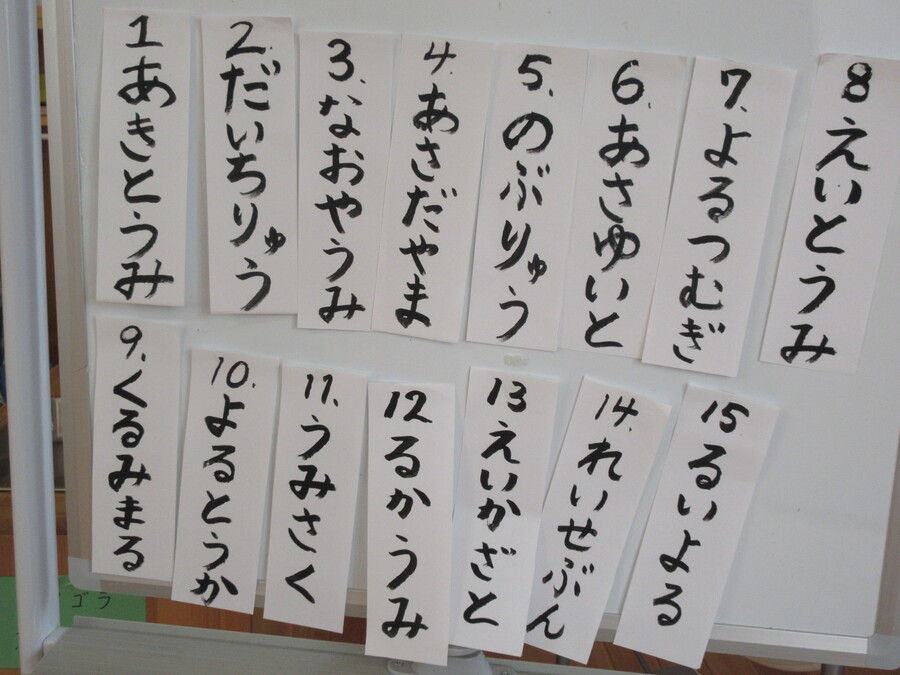 1 あきとうみ
2. だいちりゅう
3. なおやうみ
4. あさだやま
5. のぶりゅう
6. あさゆいと
7. よるつむぎ
8 えいとうみ
9. くるみまる
10. よるとうか
11. うみさく
12 るかうみ
13 えいかざと
14. れいせぶん
15 るいよる
ゴラ